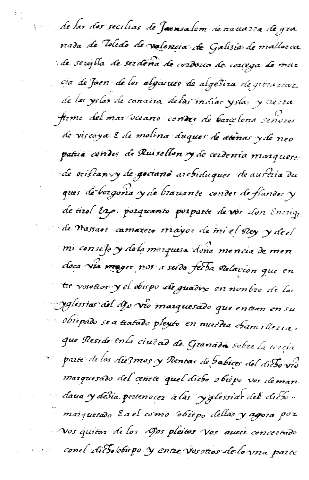 de las dos secilias de Jerusalem de navarra de gra
nada de Toledo de valencia de Galizia de mallorca
de sevilla de serdeña de cordova de corcega de mur
cia de Jaen de los algarves de algezira de gibraltar
de las yslas de canaria de las indias yslas y tierra
firme del mar oceano condes de barcelona señores
de viscaya E de molina duques de atenas y de neo
patria condes de Ruisellon y de cerdania marqueses
de oristan y de gociano archiduques de austria du
ques de borgoña y de bravante condes de flandes y
de tirol Etc. porquanto por parte de vos don Enrriq
de Nassao camarero mayor de mi el Rey y de el
mi consejo y de la marquesa doña mencia de men
doça vra muger nos a sido fecha Relacion que en
tre vosotros y el obispo de guadix en nombre de las
yglesias del dho vro marquesado que entran en su
obispado se a tratado pleyto en nuestra chancilleria
que Reside en la ciudad de Granada sobre la tercia
parte de los diezmos y Rentas de habices del dicho vro
marquesado del cenete quel dicho obispo vos deman
dava y dezia pertenecer a las yglesias del dicho
marquesado E a el como obispo dellas y agora por
vos quitar de los dhos pleitos vos aveis concertado
con el dicho obispo y entre vosotros de lo una parte